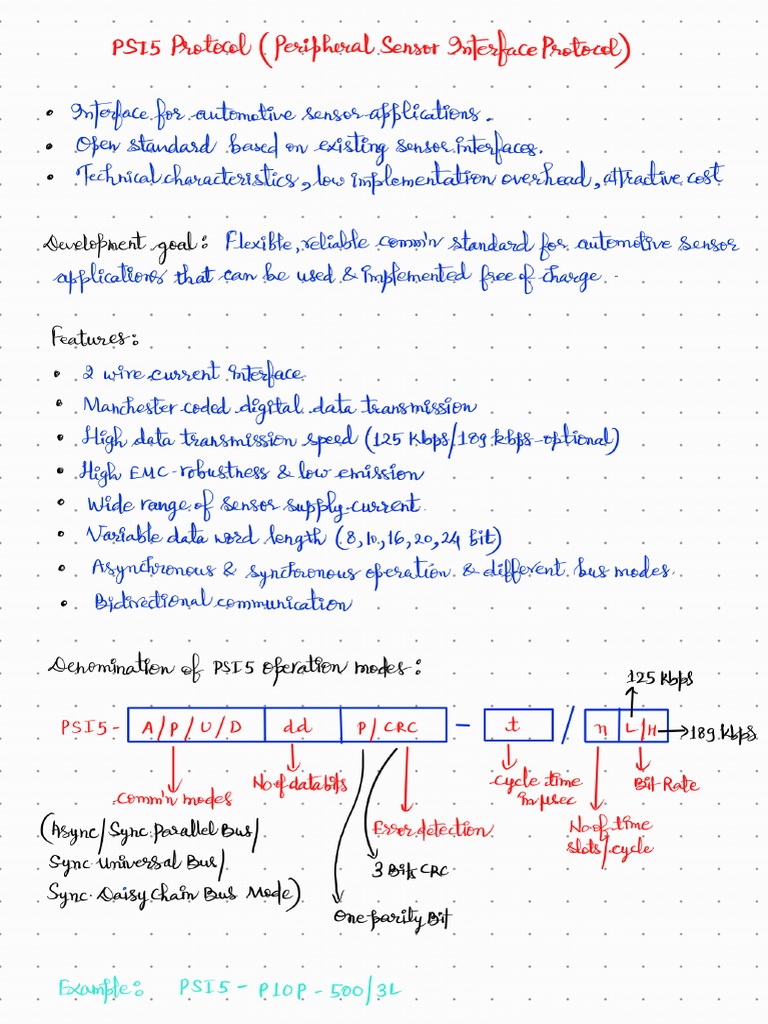 PSI5 Protocol (Peripheral Sensor Interface Protocol)
• Interface for automotive sensor applications.
• Open standard based on existing sensor interfaces.
• Technical characteristics, low implementation overhead, attractive cost
Development goal: Flexible, reliable comm'n standard for automotive sensor
applications that can be used & implemented free of charge.
Features:
• 2 wire current interface
• Manchester coded digital data transmission
• High data transmission speed (125 Kbps/189 kbps-optional)
• High EMC-robustness & low emission
• Wide range of sensor supply current
• Variable data word length (8, 10, 16, 20, 24 bit)
• Asynchronous & synchronous operation & different bus modes.
• Bidirectional communication
Denomination of PSI5 operation modes:
125 Kbps
PSI5 - A/P/U/D dd P/CRC - t / n L/H → 189 Kbps
comm'n modes No of data bits cycle time in μsec Bit Rate
(Async/Sync Parallel Bus/ Error detection No of time slots/cycle
Sync Universal Bus/ 3 Bit CRC
Sync Daisy Chain Bus Mode)
One parity Bit
Example: PSI5 - P10P - 500/3L